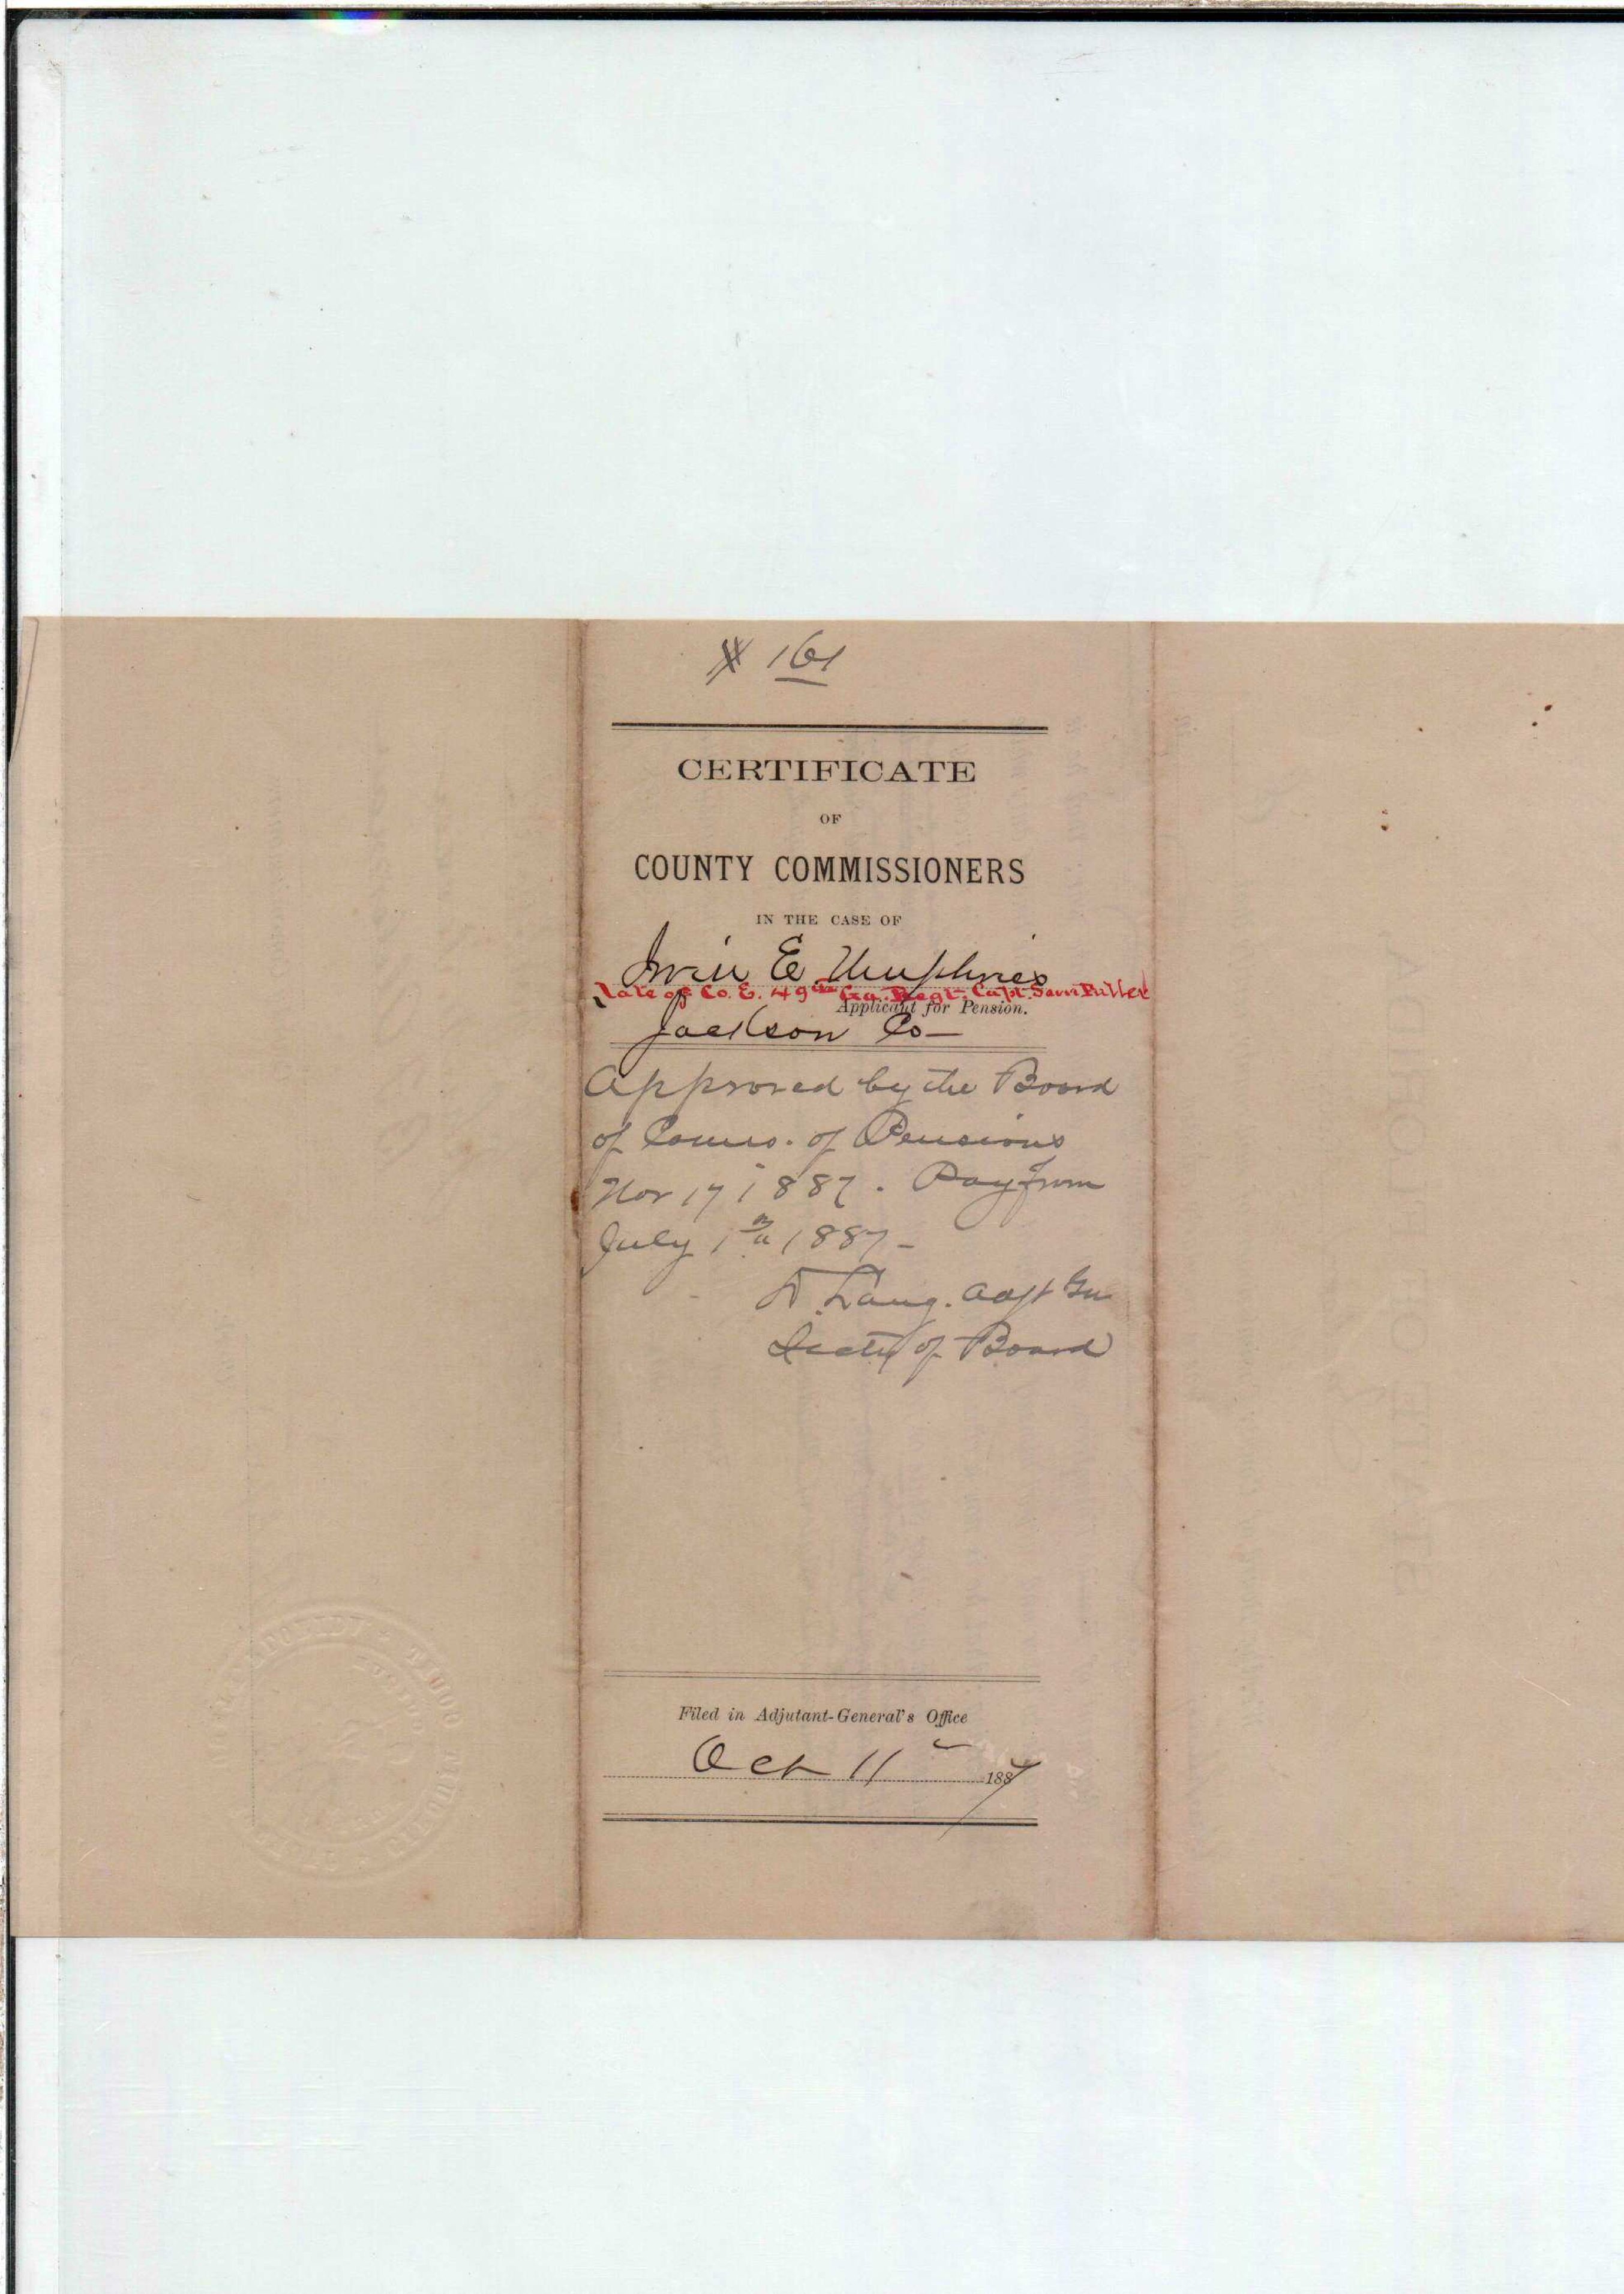 # 161
CERTIFICATE
OF
COUNTY COMMISSIONERS
IN THE CASE OF
E Umphries
Late of Co. E. 49th Ga. Regt. Capt. Sam
Applicant for Pension.
Jackson Co—
Approved by the Board
of Comrs. of Pensions
Nov 17 1887. Pay from
July 1 1887—
D. Lang. Adjt Gen
Secty of Board
Filed in Adjutant-General's Office
Oct 11 1887